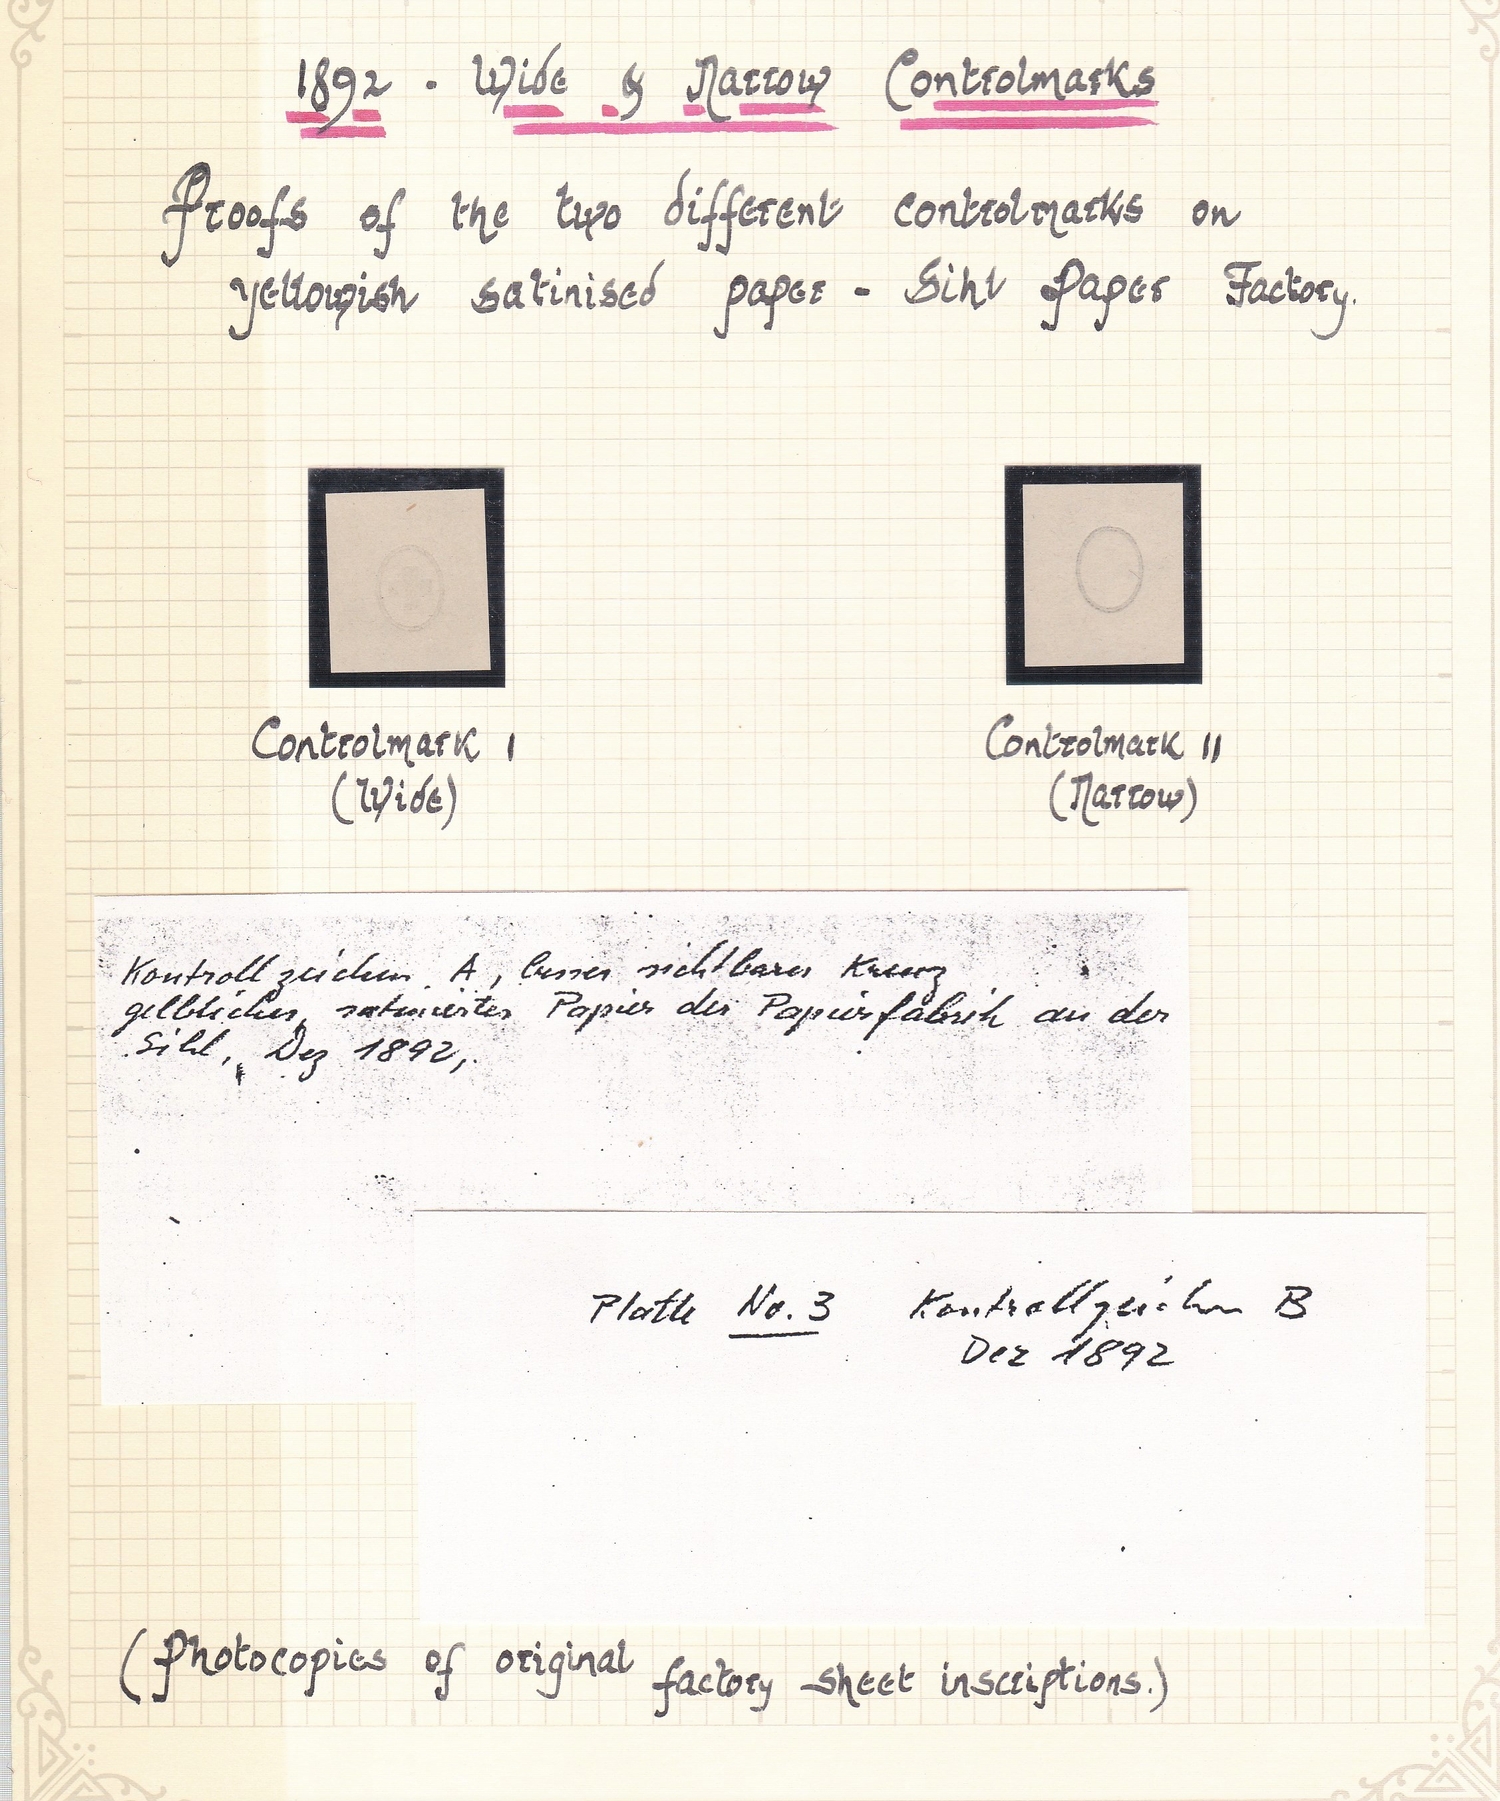 1892 - Wide & Narrow Controlmarks
Proofs of the two different controlmarks on
yellowish satinised paper - Sihl Paper Factory.
Controlmark I
(Wide)
Controlmark II
(Narrow)
Kontrollzeichen A, besser sichtbares Kreuz
gelbliches, satiniertes Papier der Papierfabrik an der
Sihl, Dez 1892,
Platte No. 3 Kontrollzeichen B
Dez 1892
(Photocopies of original
factory sheet inscriptions.)